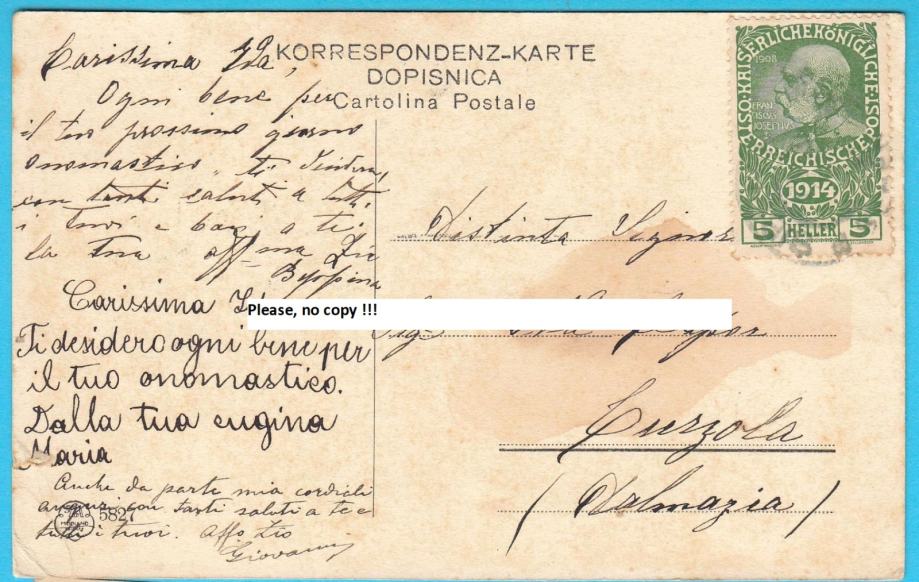 KORRESPONDENZ-KARTE
DOPISNICA
Cartolina Postale
Carissima Ida,
Ogni bene per
il tuo prossimo giorno
onomastico, ti
con tanti saluti a tutti
i tuoi e baci a te
la tua aff-ma Zia
Beppina
Carissima
Ti desidero ogni bene per
il tuo onomastico.
Dalla tua cugina
Maria
Anche da parte mia cordiali
auguri con tanti saluti a te e
tutti i tuoi. Affo zio
Giovanni
5827
Please, no copy !!!
Distinta Signor
Curzola
(Dalmazia)
KAISERLICHEKÖNIGLICHE
ÖSTERREICHISCHEPOST
1908
FRAN
CISCVS
IOSEPHVS
1914
5 HELLER 5